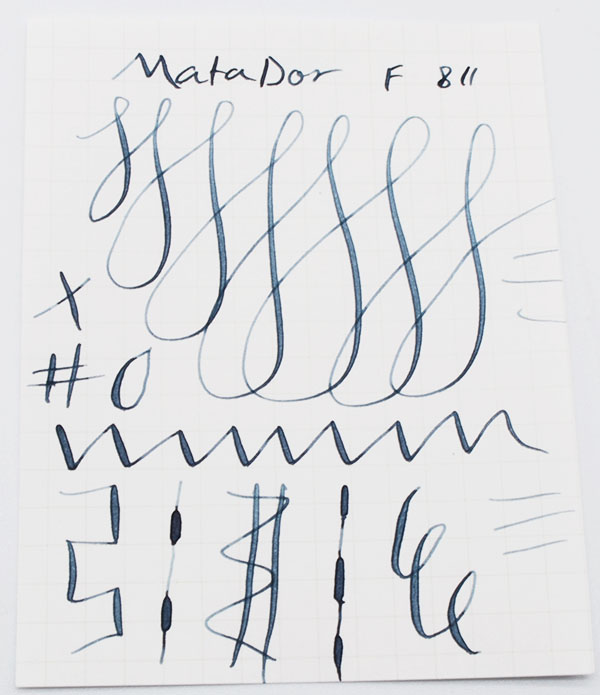 MataDor F 811
X
# 0